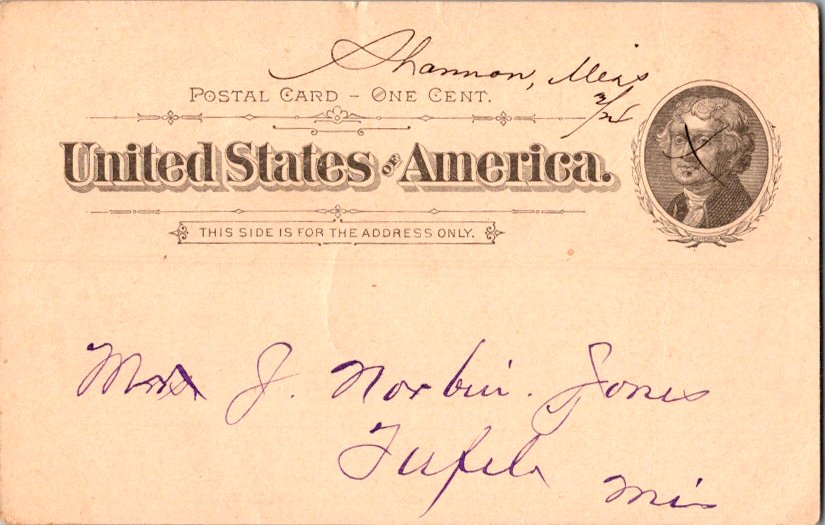 Shannon, Miss
POSTAL CARD - ONE CENT.
3/24
United States OF America.
THIS SIDE IS FOR THE ADDRESS ONLY.
J. Norbin. Jones
Tupelo
Mis